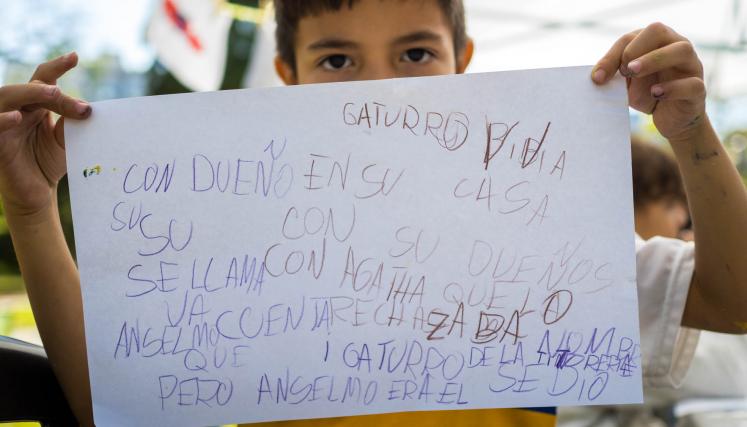 GATURRO VIVIA
CON DUEÑO EN SU CASA
SU SU CON SU DUEÑOS
SE LLAMA CON AGATHA QUE LO
VA RECHAZABA
ANSELMO CUENTA
QUE GATURRO DE LA
PERO ANSELMO ERA EL SE DIO